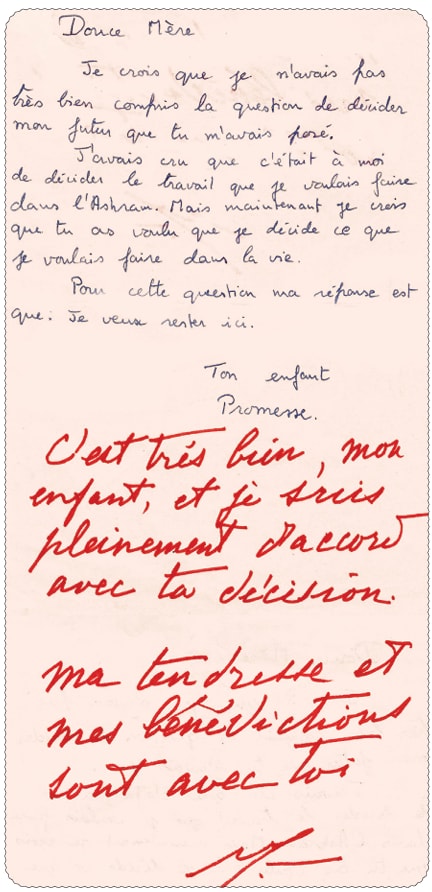 Douce Mère
Je crois que je n'avais pas
très bien compris la question de décider
mon futur que tu m'avais posé.
J'avais cru que c'était à moi
de décider le travail que je voulais faire
dans l'Ashram. Mais maintenant je crois
que tu as voulu que je décide ce que
je voulais faire dans la vie.
Pour cette question ma réponse est
que: Je veux rester ici.
Ton enfant
Promesse.
C'est très bien, mon
enfant, et je suis
pleinement d'accord
avec ta décision.
ma tendresse et
mes bénédictions
sont avec toi